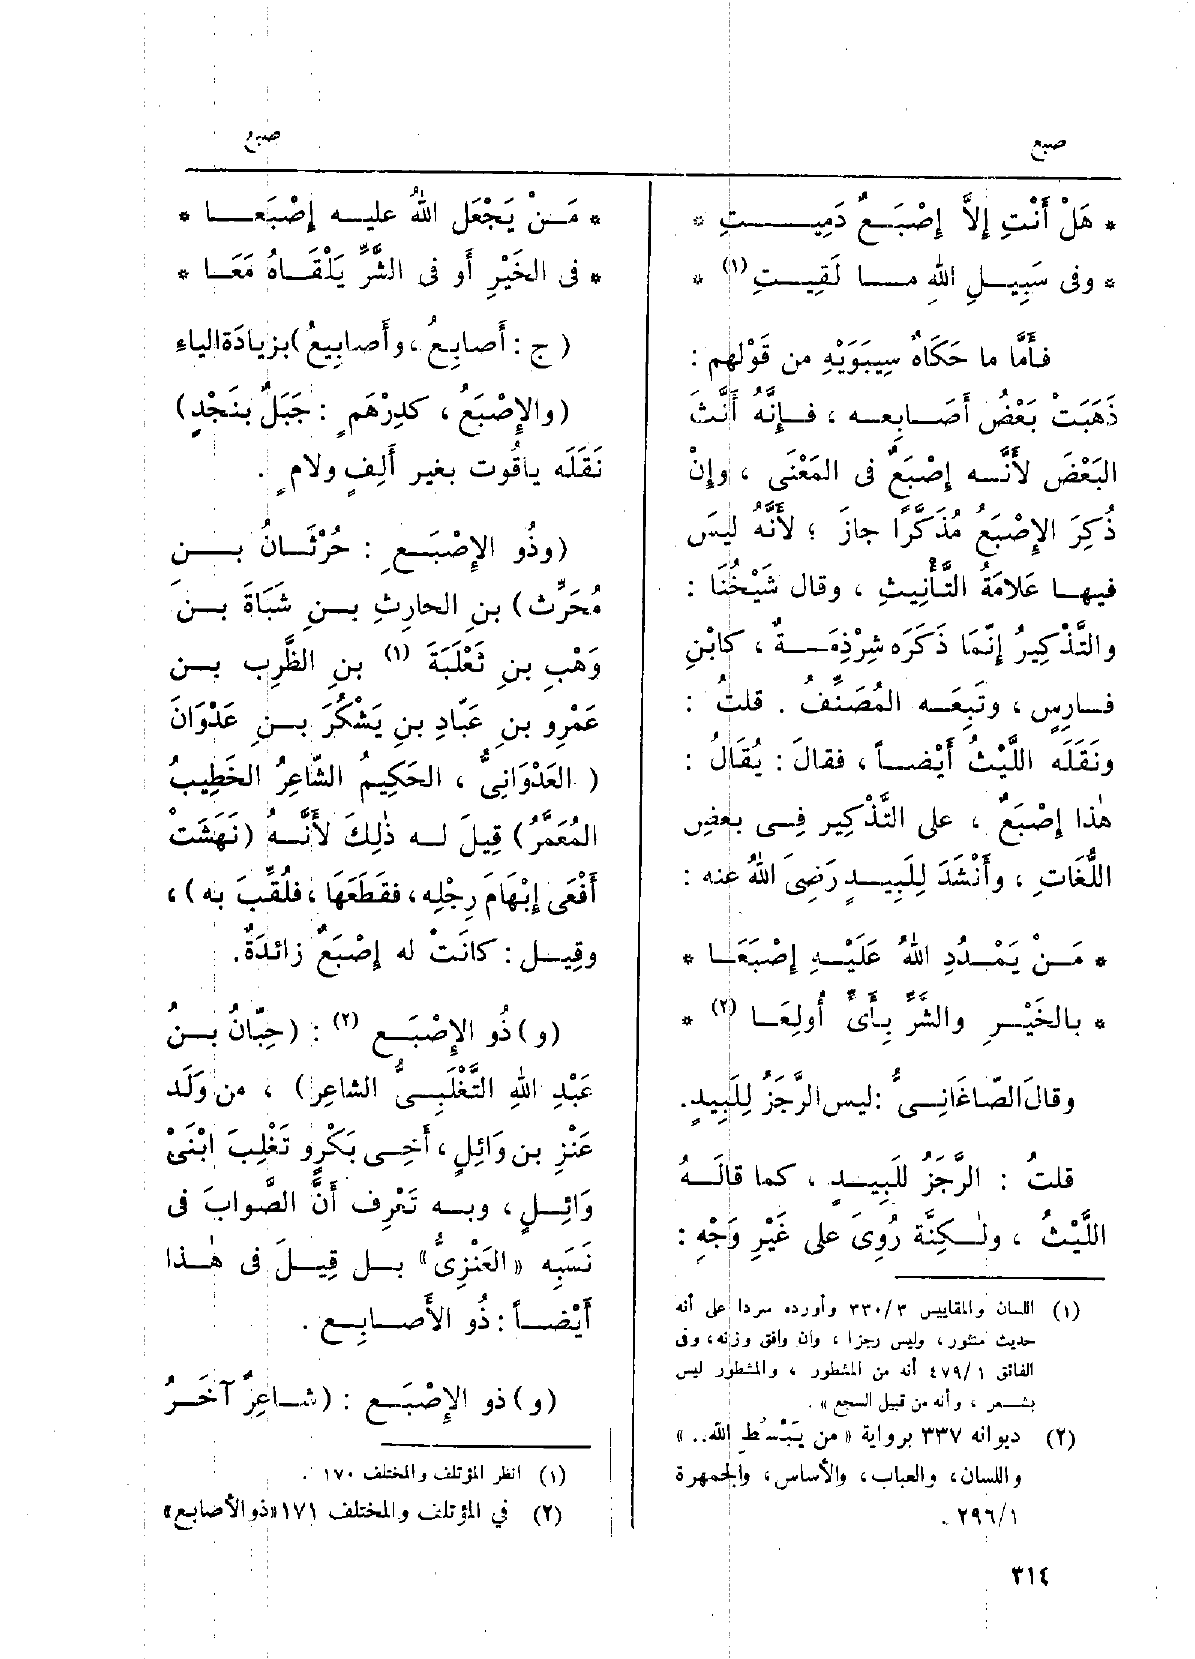 صبع
* هَلْ أَنْتِ إِلاَّ إِصْبَعٌ دَمِيتِ *
* وفى سَبِيلِ اللهِ مـا لَقِيتِ (١) *
فـأَمَّا ما حَكَاهُ سِيبَوَيْهِ من قَوْلِهم :
ذَهَبَتْ بَعْضُ أَصَابِعِه ، فـإِنَّهُ أَنَّثَ
البَعْضَ لأَنَّـه إِصْبَعٌ فى المَعْنَى ، وإِنْ
ذُكِرَ الإِصْبَعُ مُذَكَّرًا جازَ ؛ لأَنَّهُ ليسَ
فيهـا عَلامَةُ التَّأْنِيثِ ، وقال شَيْخُنَا :
والتَّذْكِيرُ إِنَّمَا ذَكَرَه شِرْذِمَـةٌ ، كابْنِ
فـارِسٍ ، وتَبِعَـه المُصَنِّفُ . قلتُ :
ونَقَلَه اللَّيْثُ أَيْضـاً ، فقالَ : يُقَالُ :
هٰذا إِصْبَعٌ ، على التَّذْكِير فِـى بعضِ
اللُّغَاتِ ، وأَنْشَدَ لِلَبِيـدٍ رَضِىَ اللهُ عنه :
* مَـنْ يَمْـدُدِ اللهُ عَلَيْـهِ إِصْبَعَـا *
* بالخَيْـرِ والشَّرِّ بِـأَىٍّ أُولِعَـا (٢) *
وقالَ الصّاغَانِـىُّ : ليس الرَّجَزُ لِلَبِيدٍ.
قلتُ : الرَّجَزُ للَبِيـدٍ ، كما قالَـهُ
اللَّيْثُ ، ولٰـكِنَّهُ رُوِىَ على غَيْرِ وَجْهٍ :
(١) اللسان والمقاييس ٣/ ٣٣٠ وأورده سردا على أنه
حديث منثور، وليس رجزا ، وان وافق وزنه، وفى
الفائق ١/ ٤٧٩ أنه من المشطور ، والمشطور ليس
بشـعر ، وأنه من قبيل السجع » .
(٢) ديوانه ٣٣٧ برواية « من يَبْسُطِ الله.. »
واللسان، والعباب، والأساس، والجمهرة
١/ ٢٩٦ .
٣١٤
صبع
* مَـنْ يَجْعَلِ اللهُ عليـه إِصْبَعـا *
* فى الخَيْرِ أو فى الشَّرِّ يَلْقَـاهُ مَعَـا *
( ج : أَصابِعُ ، وأَصابِيعُ ) بزيادَة الياءِ
( والإِصْبَعُ ، كدِرْهَمٍ : جَبَلٌ بنَجْدٍ )
نَقَلَه ياقُوت بغير أَلِفٍ ولامٍ .
( وذُو الإِصْبَـعِ : حُرْثَـانُ بـن
مُحَرِّث ) بنِ الحارِثِ بـنِ شَبَاةَ بـن
وَهْبِ بنِ ثَعْلَبَةَ (١) بنِ الظَّرِب بـن
عَمْرِو بنِ عَبّادِ بنِ يَشْكُرَ بـنِ عَدْوَانَ
( العَدْوَانِىُّ ، الحَكِيمُ الشّاعِرُ الخَطِيبُ
المُعَمَّرُ ) قِيلَ لـه ذٰلِكَ لأَنَّـهُ ( نَهَشَتْ
أَفْعَى إِبْهَامَ رِجْلِه ، فقَطَعَهَا ، فلُقِّبَ به ) ،
وقِيـل : كانَتْ له إِصْبَعٌ زائدَةٌ.
( و ) ذُو الإِصْبَـعِ (٢) : ( حِبّانُ بـنُ
عَبْدِ اللهِ التَّغْلَبِـىُّ الشاعِر ) ، من وَلَد
عَنْزِ بن وَائِلٍ ، أَخِـى بَكْرٍ و تَغْلِبَ ابْنَىْ
وَائِـلٍ ، وبـه تَعْرِف أَنَّ الصَّوابَ فى
نَسَبِه «العَنْزِىُّ» بـل قِيـلَ فى هٰـذا
أَيْضـاً : ذُو الأَصـابِـعِ .
( و ) ذو الإِصْبَـعِ : ( شـاعِرٌ آخَـرُ
(١) انظر المؤتلف والمختلف ١٧٠ .
(٢) في المؤتلف والمختلف ١٧١ «ذو الأصابع»